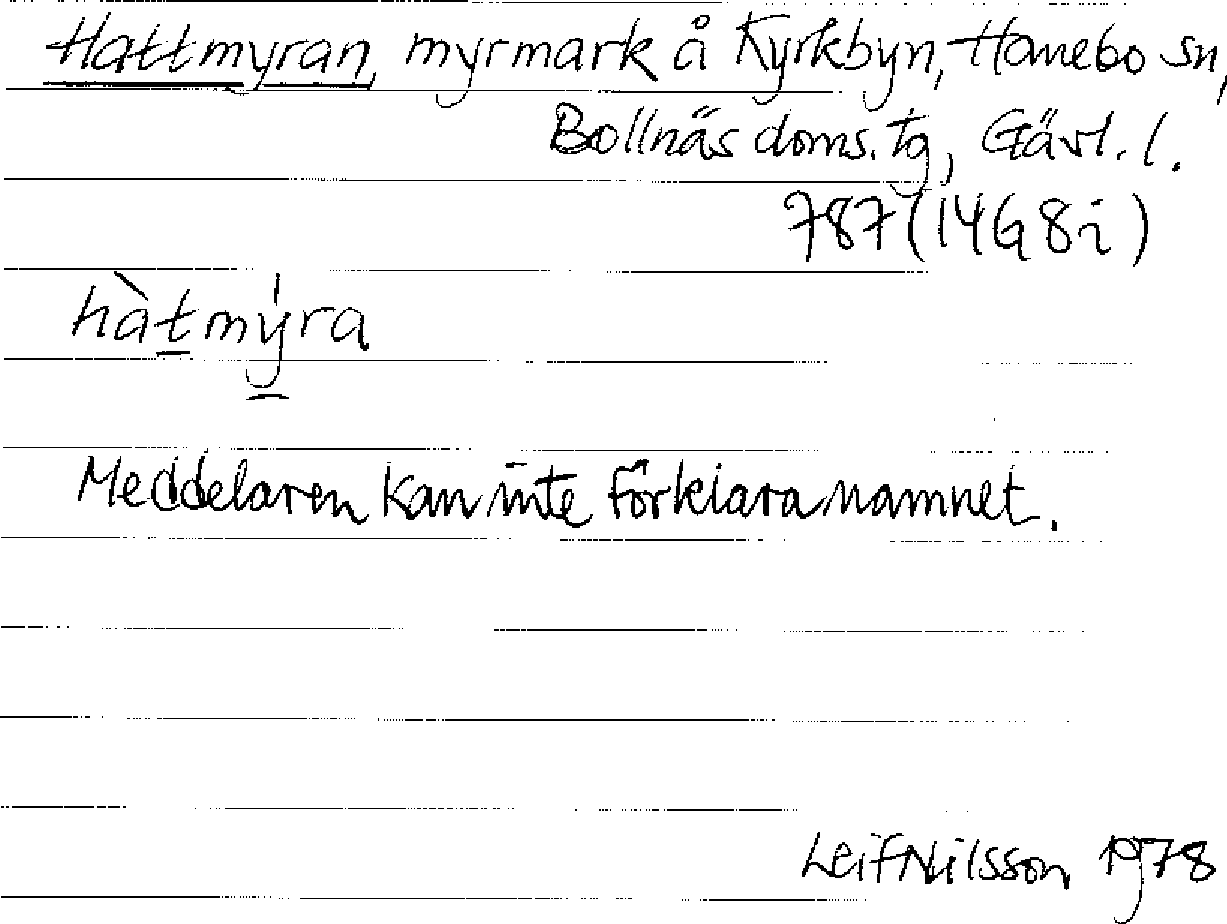 Hattmyran, myrmark å Kyrkbyn, Hanebo sn,
Bollnäs doms. tg, Gävl. l.
787 (14G 8i)
hàt̲mý̲ra
Meddelaren kan inte förklara namnet.
Leif Nilsson 1978